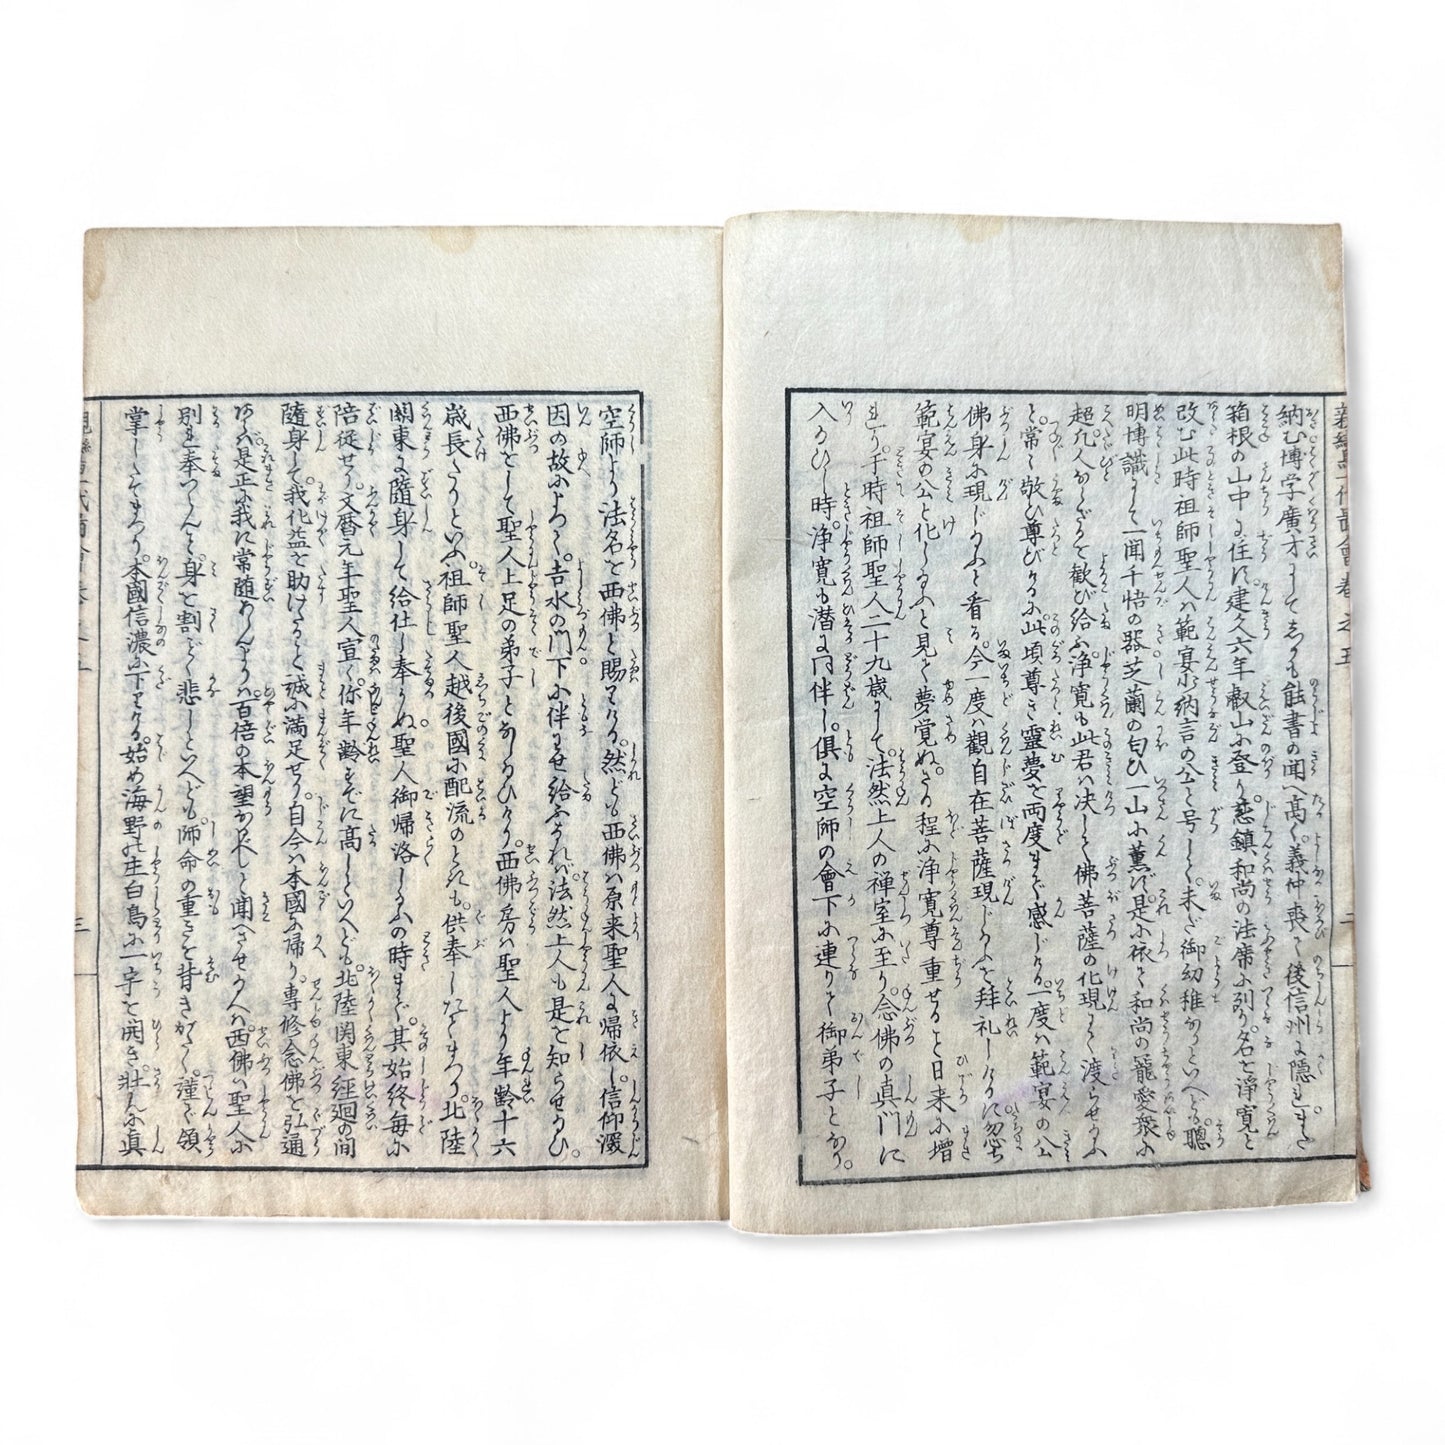 納む博学廣才にしてしかも能書の聞へ高く。義仲喪て後信州に隠れまた
箱根の山中に住に建久六年叡山に登り慈鎮和尚の法席に列り名を浄寛と
改む此時祖師聖人ハ範宴少納言の公と号して未だ御幼稚なりといへども聰
明博識にして一聞千悟の器芝蘭の匂ひ一山に薫ず是に依て和尚の寵愛衆に
超元人かぎりて歓び給ふ浄寛も此君ハ决して佛菩薩の化現にて渡らせ給ふ
と。常に敬ひ尊びけるに此頃尊き靈夢を両度まで感じける。一度ハ範宴の公
佛身に現じ給ふと看る。今一度ハ觀自在菩薩現じ給ふを拜礼しけるに忽ち
範宴の公と化し給ふと見て夢覚ぬ。さる程に浄寛尊重せること日来に増
れり。于時祖師聖人二十九歳にして。法然上人の禅室に至り。念佛の真門に
入給ひし時。浄寛も潜に同伴し。倶に空師の會下に連りて御弟子となり。
空師より法名を西佛と賜はりける。然ども西佛ハ原来聖人に帰依し信仰深
因の故によつて。吉水の門下に伴はせ給ふなれバ法然上人も是を知らせ給ひ。
西佛をして聖人上足の弟子となし給ひけり。西佛房ハ聖人より年齢十六
歳長たりといふ祖師聖人越後國に配流のときも。供奉しなどまつり。北陸
關東に隨身して給仕し奉りぬ。聖人御帰洛し給ふの時まで。其始終毎に
陪従せり。文暦元年聖人宣く你年齢すでに高しといへども。北陸関東経廻の間
隨身して。我化益を助けたること誠に満足せり。自今ハ本國に帰り。專修念佛を弘通
あらバ。是正に我に常随あらんよりハ。百倍の本望なるべしと聞へさせ給へハ。西佛ハ聖人に
別れ奉つらんこと。身を割ごとく悲しといへども。師命の重きを背きがたく。謹て領
掌したてまつり。本國信濃に下りける。始め海野の庄白鳥に一宇を開き。壮んに真